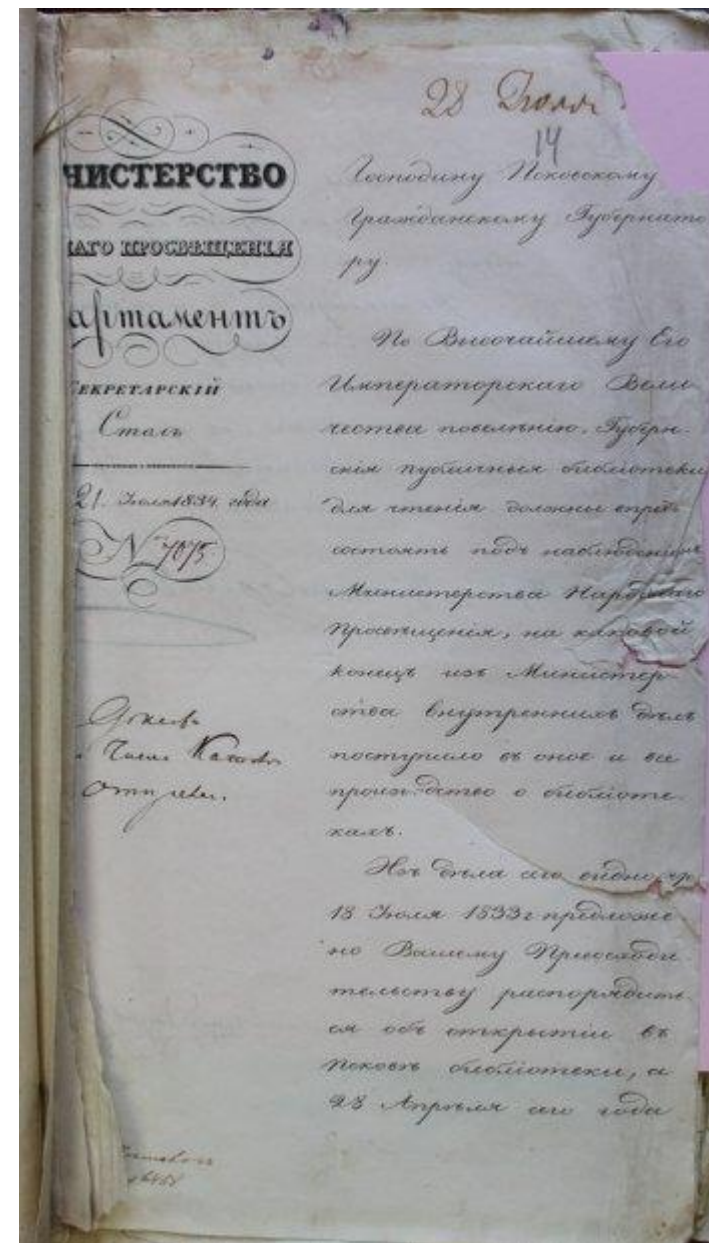 28 Июля
14
НИСТЕРСТВО
НАГО ПРОСВѢЩЕНІЯ
артаментъ
СЕКРЕТАРСКІЙ
Столъ
21. Июля 1834. года
№ 7075
Господину Псковскому
Гражданскому Губернато
ру.
По Высочайшему Его
Императорскаго Вели
чества повелѣнію, Губерн-
скія публичныя библіотеки
для чтенія должны впредь
состоять подъ наблюденіемъ
Министерства Народнаго
Просвѣщенія, на каковой
конецъ изъ Министер-
ства Внутреннихъ Дѣлъ
поступило въ оное и все
производство о библіоте-
кахъ.
Изъ дѣла сего видно, что
18 Июля 1833 г предложе
но Вашему Превосходи-
тельству распорядить-
ся объ открытіи въ
Псковѣ библіотеки, а
23 Апрѣля сего года